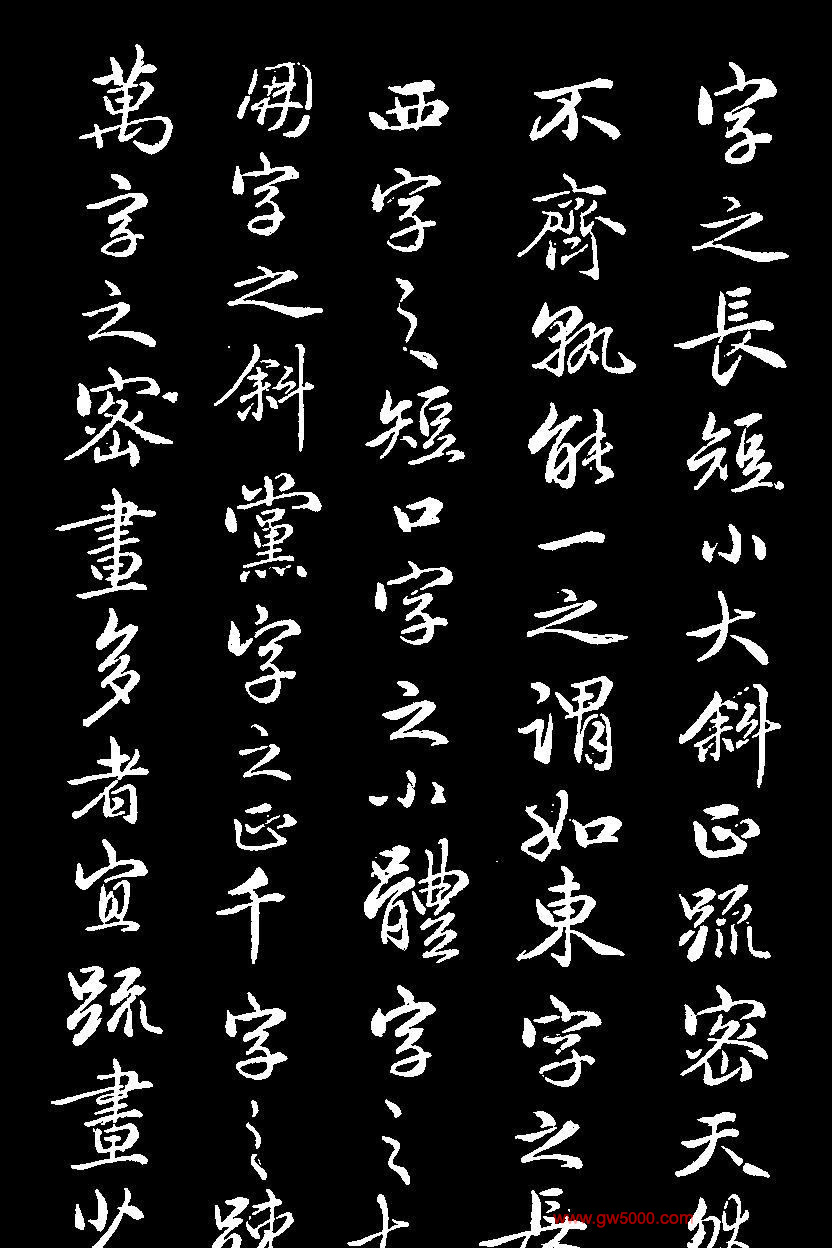 字之長短小大斜正疏密天然
不齊孰能一之謂如東字之長
西字之短口字之小體字之大
朋字之斜黨字之正千字之疎
萬字之密畫多者宜疏畫少
www.gw5000.com